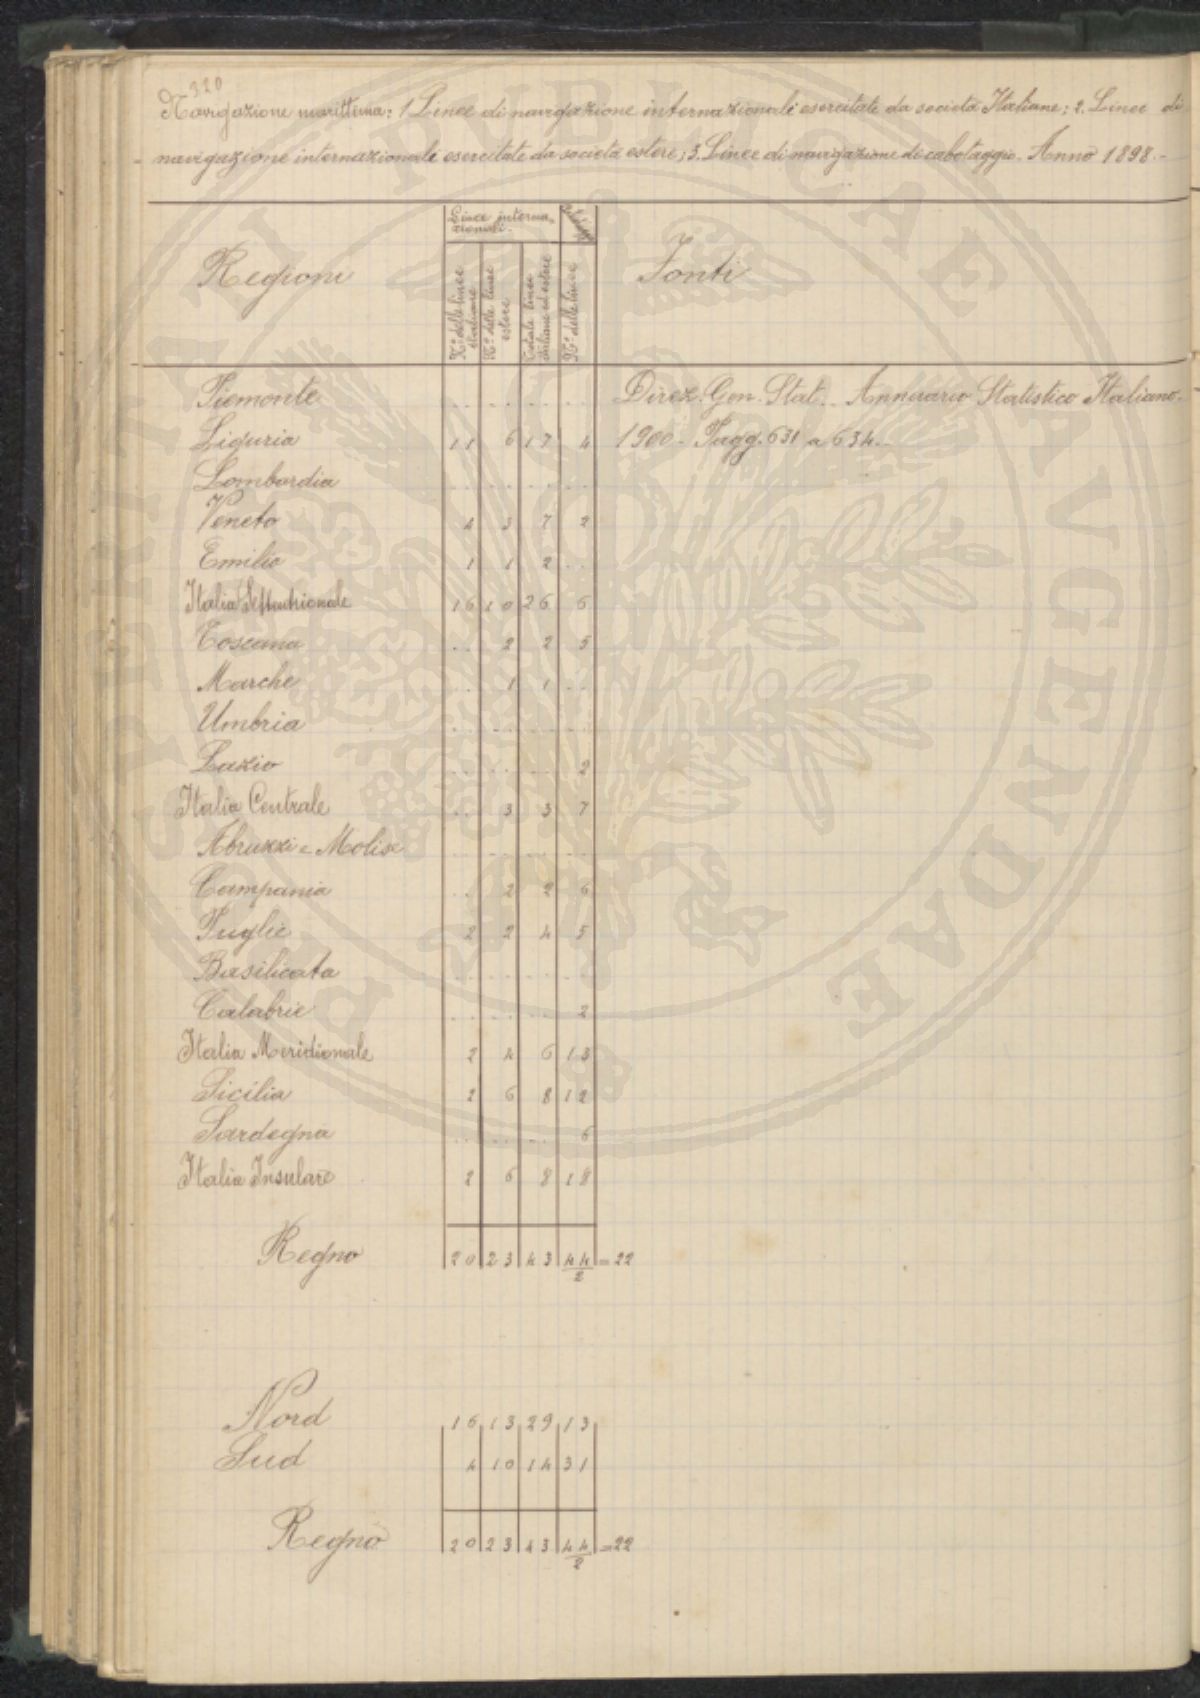 320
Navigazione marittima: 1 Linee di navigazione internazionali esercitate da società Italiane; 2. Linee di
navigazione internazionali esercitate da società estere; 3. Linee di navigazione di cabotaggio. Anno 1898.-
Regioni
Linee interna-
zionali.
N.º delle linee italiane
N.º delle linee estere
Totale linee italiane ed estere
N.º delle linee
Fonti
Piemonte .. .. .. .. Direz. Gen. Stat. - Annuario Statistico Italiano.
Liguria 11 6 17 4 1900 - Pagg. 631 a 634.-
Lombardia .. .. .. ..
Veneto 4 3 7 2
Emilia 1 1 2 ..
Italia Settentrionale 16 10 26 6
Toscana .. 2 2 5
Marche .. 1 1 ..
Umbria .. .. .. ..
Lazio .. .. .. 2
Italia Centrale .. 3 3 7
Abruzzi e Molise .. .. .. ..
Campania .. 2 2 6
Puglie 2 2 4 5
Basilicata .. .. .. ..
Calabrie .. .. .. 2
Italia Meridionale 2 4 6 13
Sicilia 2 6 8 12
Sardegna .. .. .. 6
Italia Insulare 2 6 8 18
Regno 20 23 43 44/2 = 22
Nord 16 13 29 13
Sud 4 10 14 31
Regno 20 23 43 44/2 = 22
POSTERITATI PUBLICAE AVGENDAE